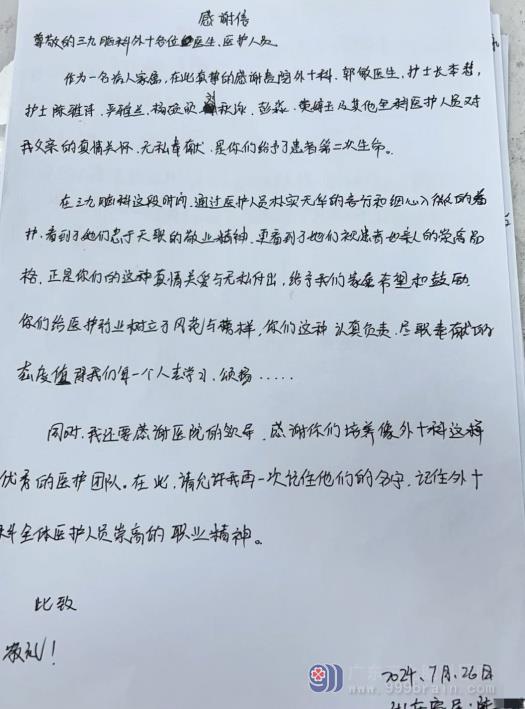 感谢信
尊敬的三九脑科外十各位医生、医护人员
作为一名病人家属,在此真挚的感谢贵院外十科,郭敏医生,护士长李哲,
护士陈雅诗,吴雅兰,杨硕硕,刘秋添,彭淼,黄嶂玉及其他全科医护人员对
我父亲的真情关怀、无私奉献,是你们给予了患者第二次生命。
在三九脑科这段时间,通过医护人员朴实无华的言行和细心入微的看
护,看到了她们忠于天职的敬业精神,更看到了她们视患者如亲人的崇高品
格,正是你们的这种真情关爱与无私付出,给予我们家庭希望和鼓励
你们给医护行业树立了风范与榜样,你们这种认真负责、尽职奉献的
态度值得我们每一个人去学习、颂扬......
同时,我还要感谢医院的领导,感谢你们培养像外十科这样
优秀的医护团队。在此,请允许我再一次记住他们的名字,记住外十
科全体医护人员崇高的职业精神。
此致
敬礼!
2024,7月,26日
广东三九脑科医院
www.999brain.com